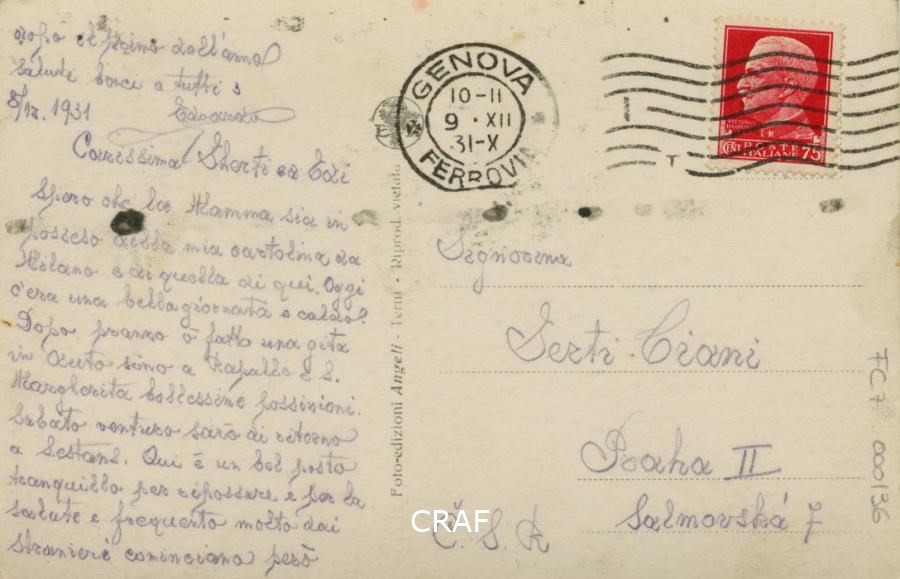 dopo il primo dell'anno
Saluti baci a tutti
8/12. 1931 Edoardo
Carissima Gherti ed Edi
Spero che la Mamma sia in
possesso della mia cartolina da
Milano e di quella di qui. Oggi
c'era una bella giornata e caldo!
Dopo pranzo ò fatto una gita
in Auto sino a Rapallo e S.
Margherita bellissime possizioni.
Sabato venturo sarò di ritorno
a Sestans. Qui é un bel posto
tranquillo per ripossare e per la
salute e frequento molto dai
stranieri cominciano però
Foto-edizioni Angeli - Terni - Riprod. vietata
GENOVA
10-11
9 · XII
31-X
FERROVIA
POSTE
ITALIANE
CENT 75
Signorina
Gerti Ciani
Praha II
Salmovská 7
Č. S. R
CRAF
FC7 000136